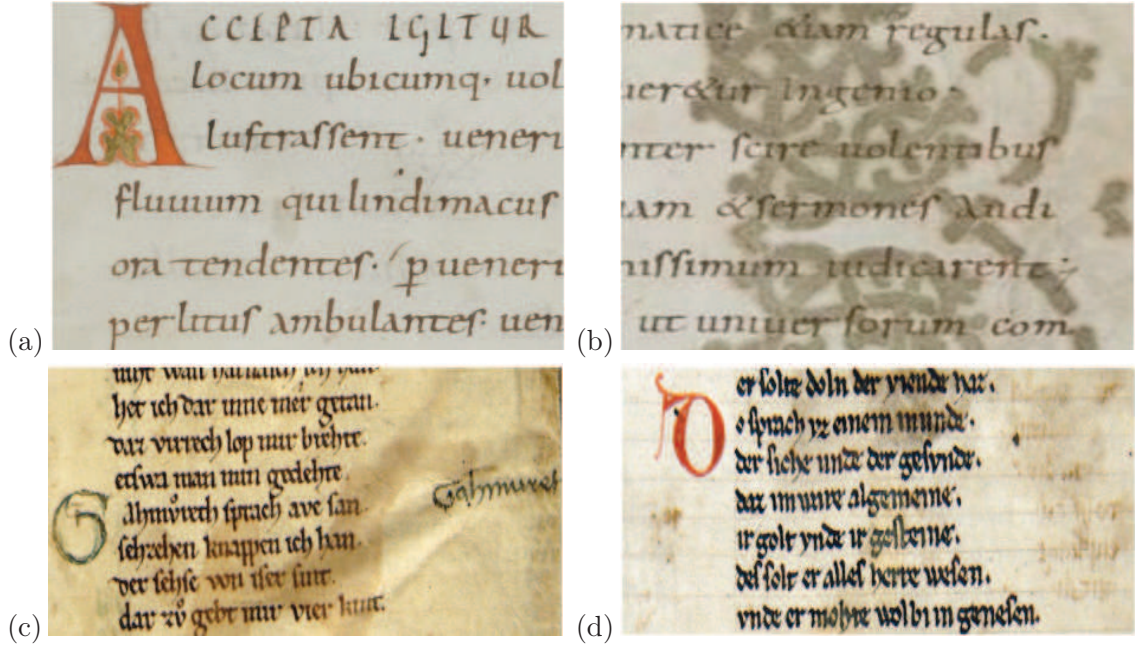 (a)
ACCEPTA IGITUR
locum ubicumq· uol
luſtraſſent · uenerı
fluuıum quı lındımacus
ora tendentes · p uenerı
per lıtus ambulantes· uen
(b)
matıce &ıam regulaſ·
uer&ur Ingenıo ·
nter ſcıre uolentıbuſ
uam &ſermoneſ Audı
nıſſımum ıudıcarent ;
ut unıuer ſorum com
(c)
het ich dar ınne mer getan·
daz vırrech lop mır brehte·
etſwa man mın gedehte·
Gahmuret
Gahmůreth ſprach ave ſan·
ſehzehen knappen ıch han·
der ſehſe von ıſer ſınt·
dar zů gebt mır vıer kınt·
(d)
er ſolte doln der vıende haz·
Do ſprach vz eınem munde·
der ſıche unde der geſvnde·
daz ım wære algemeıne·
ır golt vnde ır geſteıne·
deſ ſolt er alleſ herre weſen·
vnde er mohte wol bı ın geneſen·